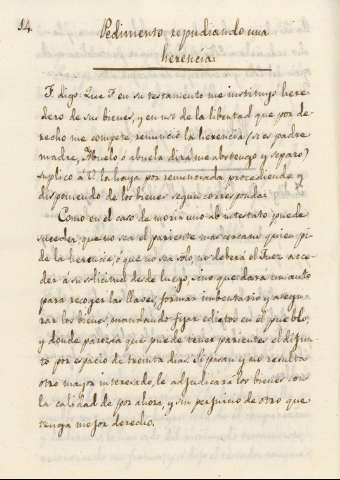 14.
Pedimento repudiando una
herencia.
F. digo: Que F. en su testamento me instituyo here-
dero de sus bienes, y en uso de la libertad que por de-
recho me compete, renuncio la herencia (si es padre
madre, Abuelo o abuela dirá me abstengo y separo)
suplico á V. la haya por renunciada procediendo y
disponiendo de los bienes segun corresponda.
Como en el caso de morir uno ab intestato puede
suceder que no sea el pariente mas cercano quien pi-
de la herencia, o que no sea solo, no deberá el Juez acce-
der á su solicitud desde luego, sino que dará un auto
para recoger las llaves, formar imbentario y asegu-
rar los bienes, mandando fijar edictos en el pueblo,
y donde parezca que puede tener parientes el difun-
to por espacio de treinta dias. Si pasan y no resulta
otro mayor interesado, le adjudicará los bienes con
la calidad de por ahora, y sin perjuicio de otro que
tenga mejor derecho.